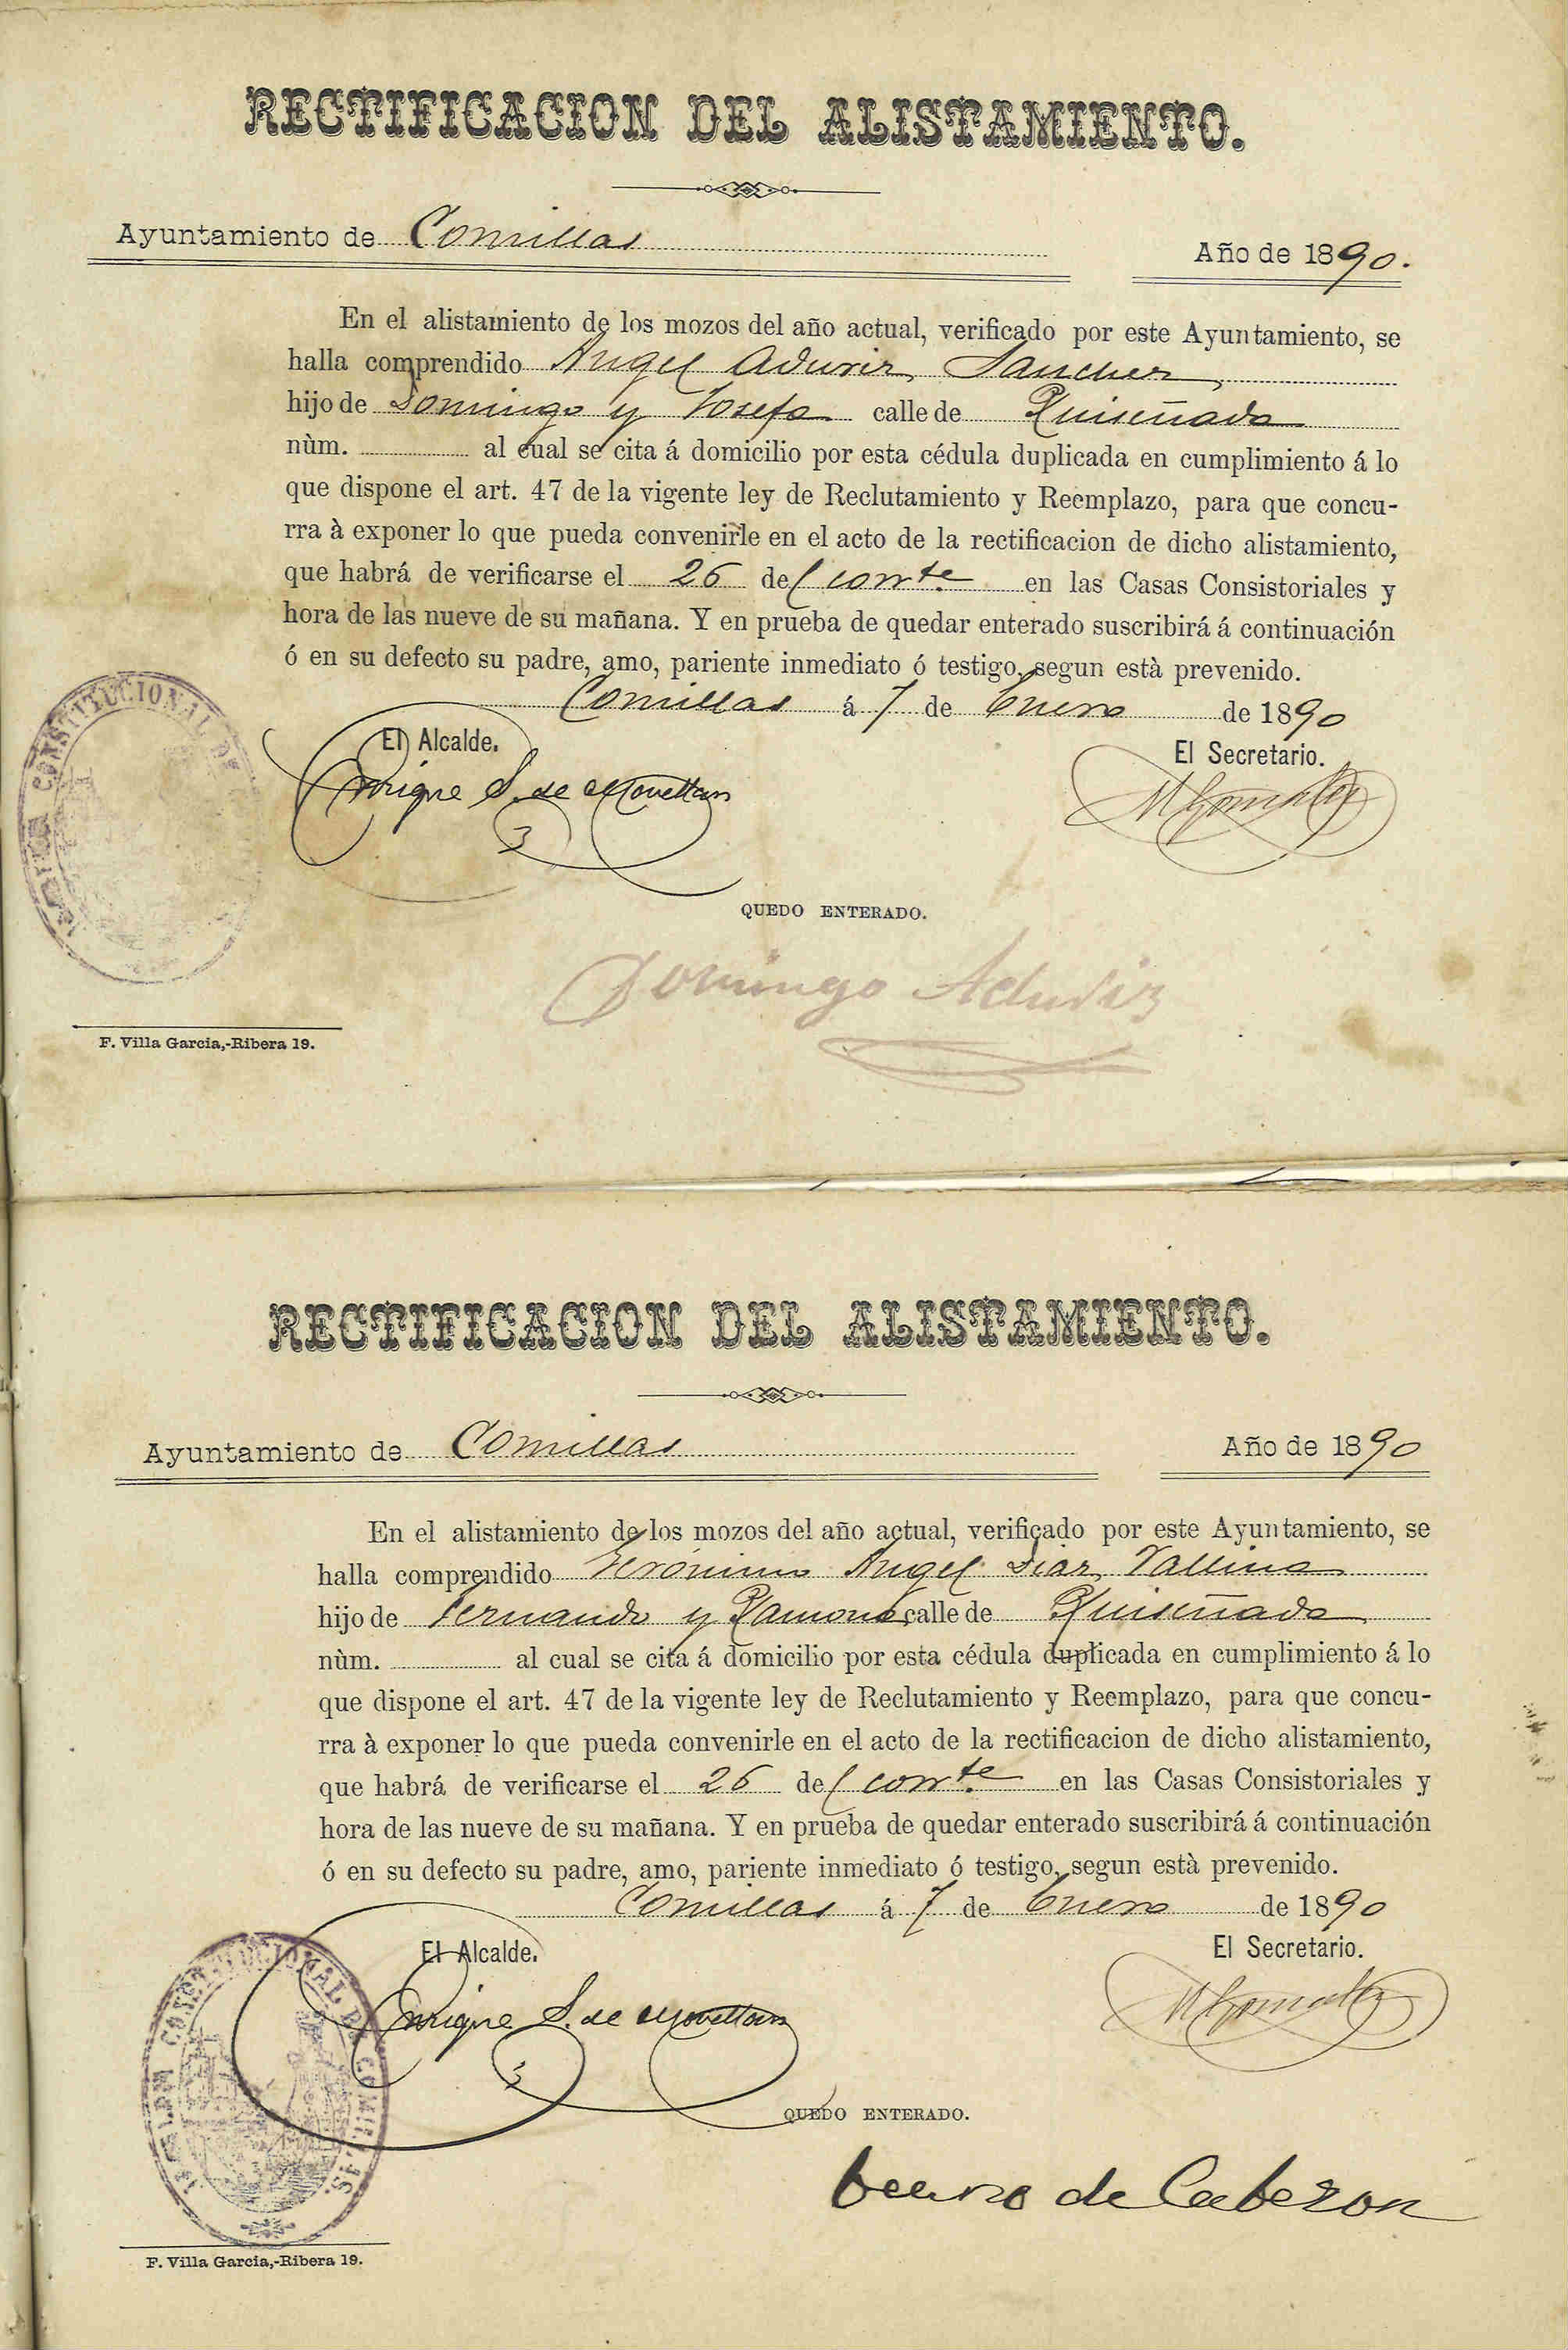 RECTIFICACION DEL ALISTAMIENTO.
Ayuntamiento de Comillas Año de 1890.
En el alistamiento de los mozos del año actual, verificado por este Ayuntamiento, se
halla comprendido Angel Aduriz Sanchez
hijo de Domingo y Josefa calle de Ruiseñada
nùm. al cual se cita á domicilio por esta cédula duplicada en cumplimiento á lo
que dispone el art. 47 de la vigente ley de Reclutamiento y Reemplazo, para que concu-
rra à exponer lo que pueda convenirle en el acto de la rectificacion de dicho alistamiento,
que habrá de verificarse el 26 del corrte en las Casas Consistoriales y
hora de las nueve de su mañana. Y en prueba de quedar enterado suscribirá á continuación
ó en su defecto su padre, amo, pariente inmediato ó testigo, segun està prevenido.
Comillas á 7 de Enero de 1890
El Alcalde. El Secretario.
Enrique S. de Movellan M Gonzalez
CONSTITUCIONAL DE
QUEDO ENTERADO.
Domingo Aduriz
F. Villa Garcia,-Ribera 19.
RECTIFICACION DEL ALISTAMIENTO.
Ayuntamiento de Comillas Año de 1890
En el alistamiento de los mozos del año actual, verificado por este Ayuntamiento, se
halla comprendido Gerónimo Angel Diaz Vallina
hijo de Fernando y Ramona calle de Ruiseñada
nùm. al cual se cita á domicilio por esta cédula duplicada en cumplimiento á lo
que dispone el art. 47 de la vigente ley de Reclutamiento y Reemplazo, para que concu-
rra à exponer lo que pueda convenirle en el acto de la rectificacion de dicho alistamiento,
que habrá de verificarse el 26 del corrte en las Casas Consistoriales y
hora de las nueve de su mañana. Y en prueba de quedar enterado suscribirá á continuación
ó en su defecto su padre, amo, pariente inmediato ó testigo, segun està prevenido.
Comillas á 7 de Enero de 1890
El Alcalde. El Secretario.
Enrique S. de Movellan M Gonzalez
ALCALDIA CONSTITUCIONAL DE COMILLAS
QUEDO ENTERADO.
de Cabezon
F. Villa Garcia,-Ribera 19.